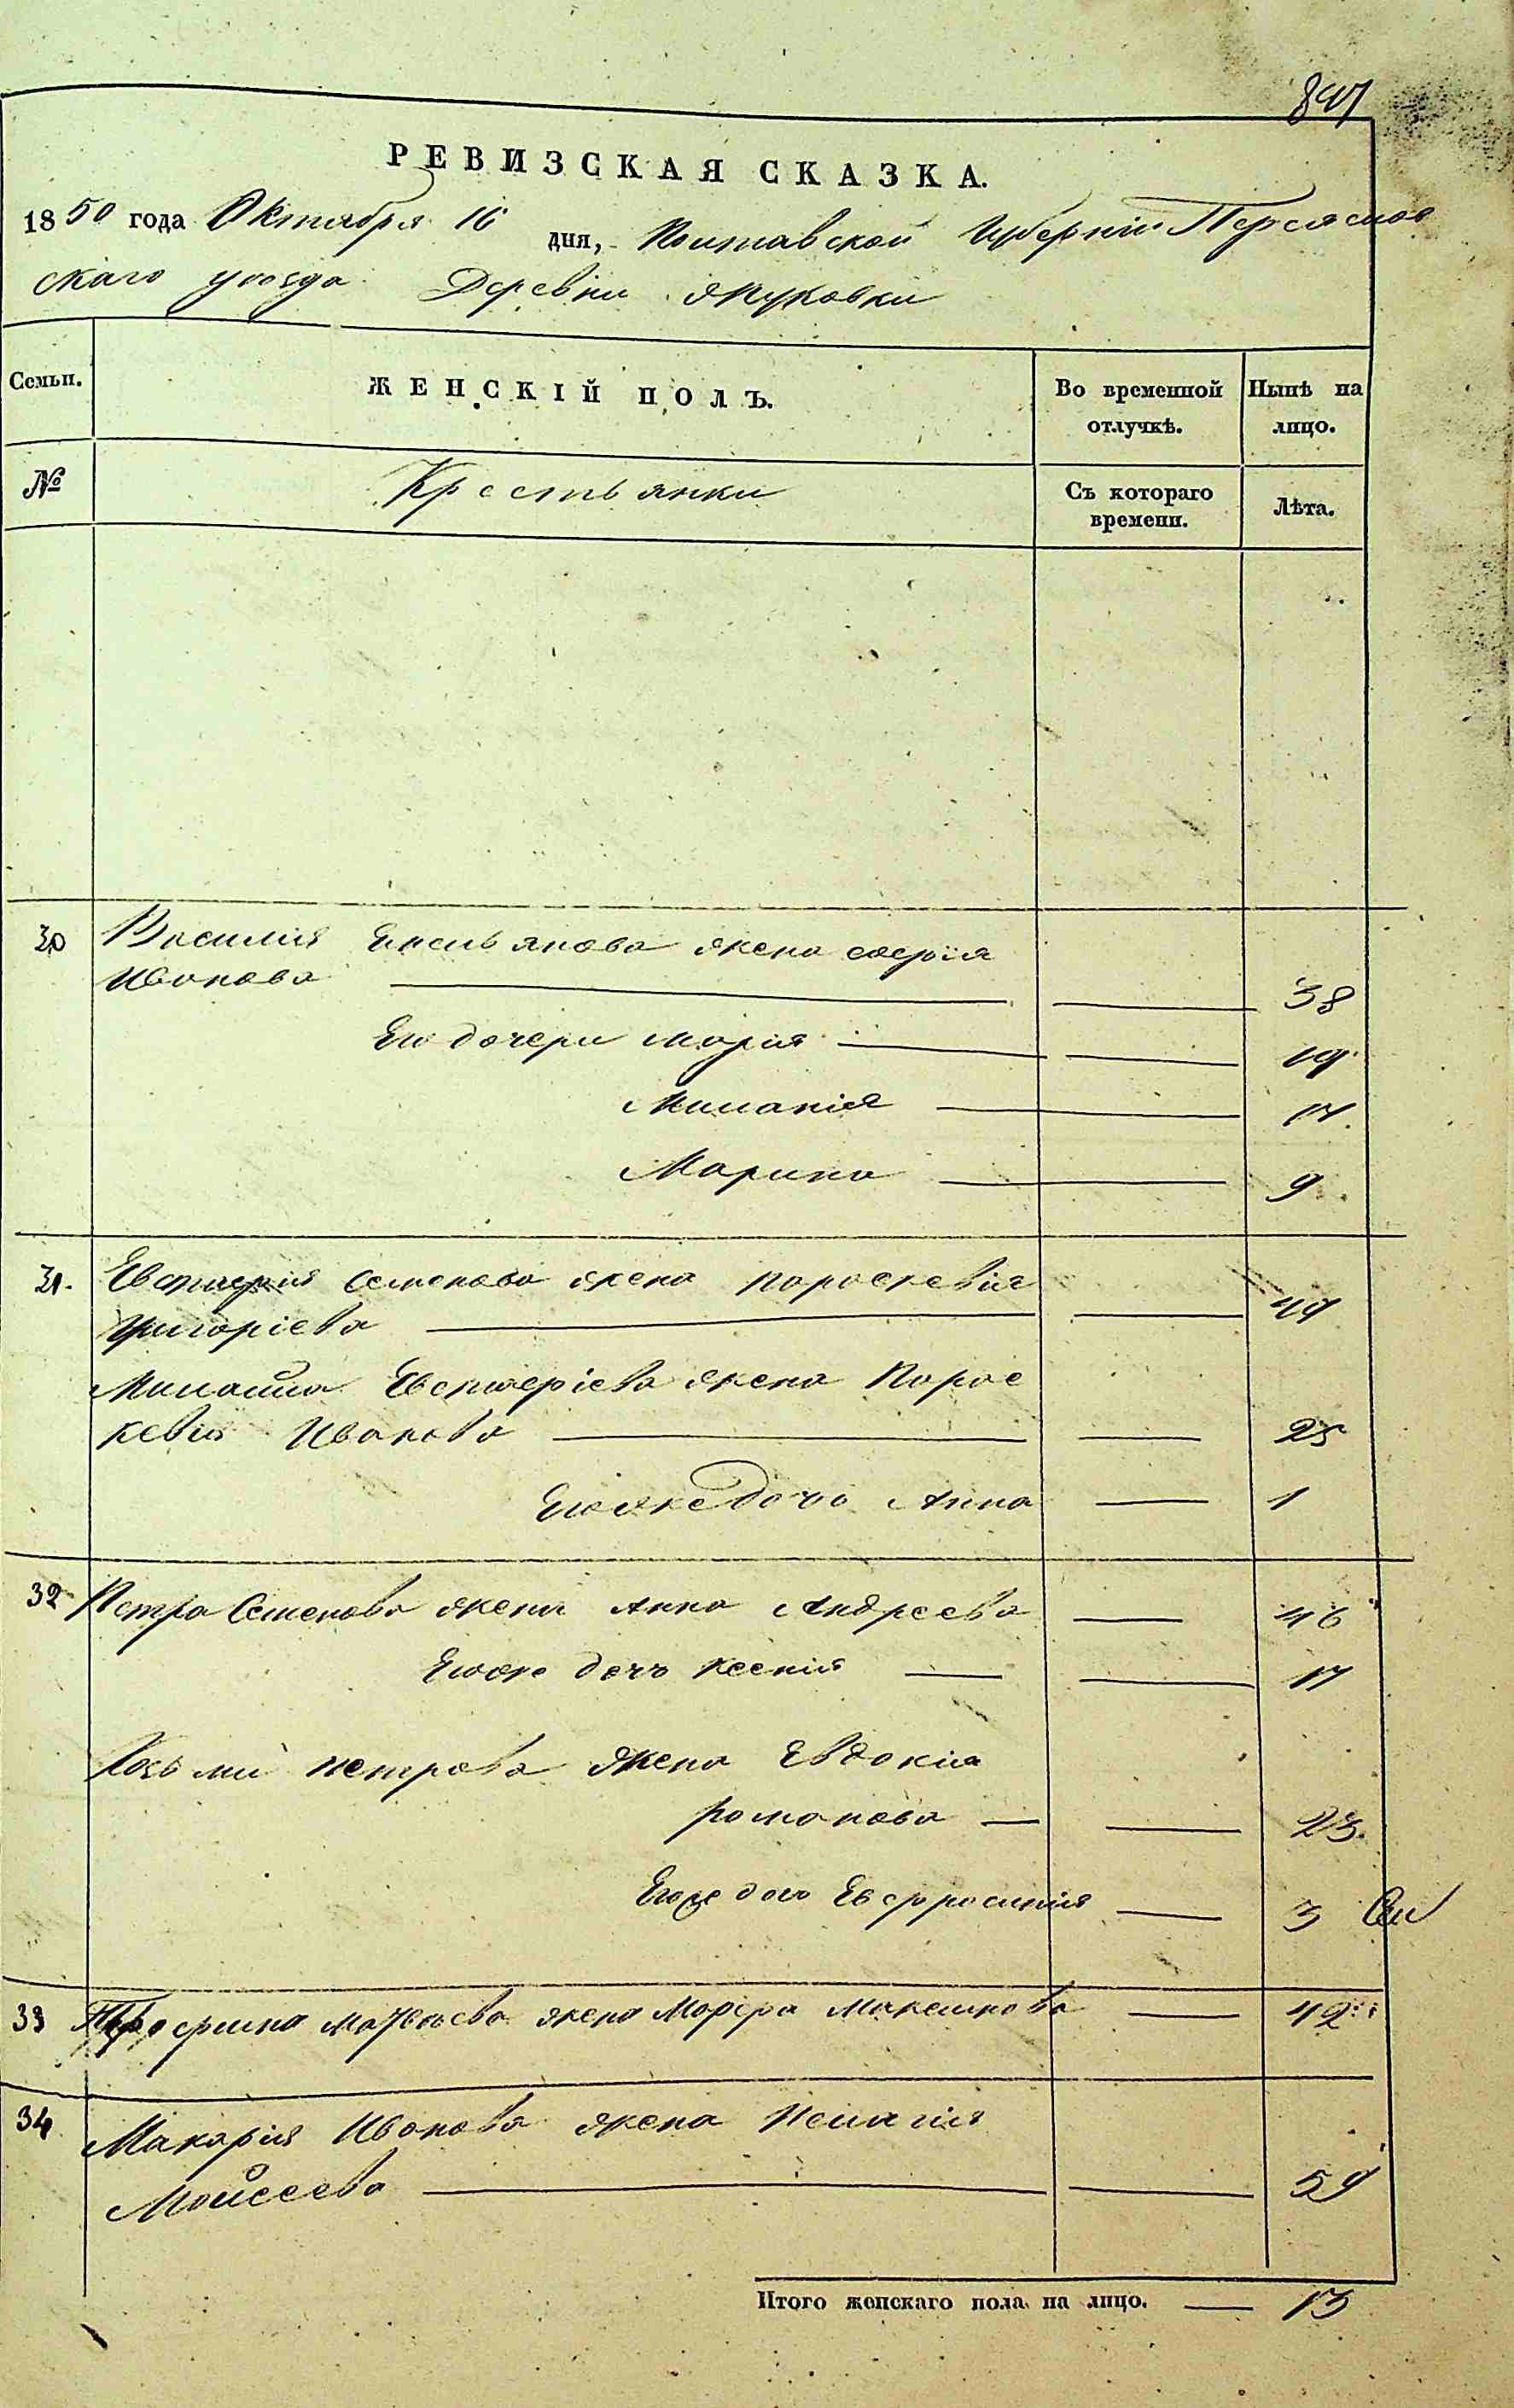 847
РЕВИЗСКАЯ СКАЗКА.
1850 года Октября 16 дня, Полтавской Губерніи Переяслов
скаго уѣзда Деревни Жуковки
Семьи. ЖЕНСКІЙ ПОЛЪ. Во временной отлучкѣ. Нынѣ на лицо.
№ Крестьянки Съ котораго времени. Лѣта.
30 Василия Емельянова жена софія
Иванова 38
Его дочери Марія 19
Миланія 17
Марина 9
31. Евстафия Семенова жена Пороскевия
Григоріева 49
Михайла Евстафіева жена Порос
кевия Иванова 25
Егоже дочь Анна 1
32 Петра Семенова жена Анна Андреева 46
Егоже дочь Ксения 17
Козьми петрова жена Евдокия
романова 23.
Егоже дочь Евфросиния 3
33 Трофима матвѣева жена Марфа Максимова 42
34 Макария Иванова жена Пелагия
Мойсеева 59
Итого женскаго пола на лицо. 13